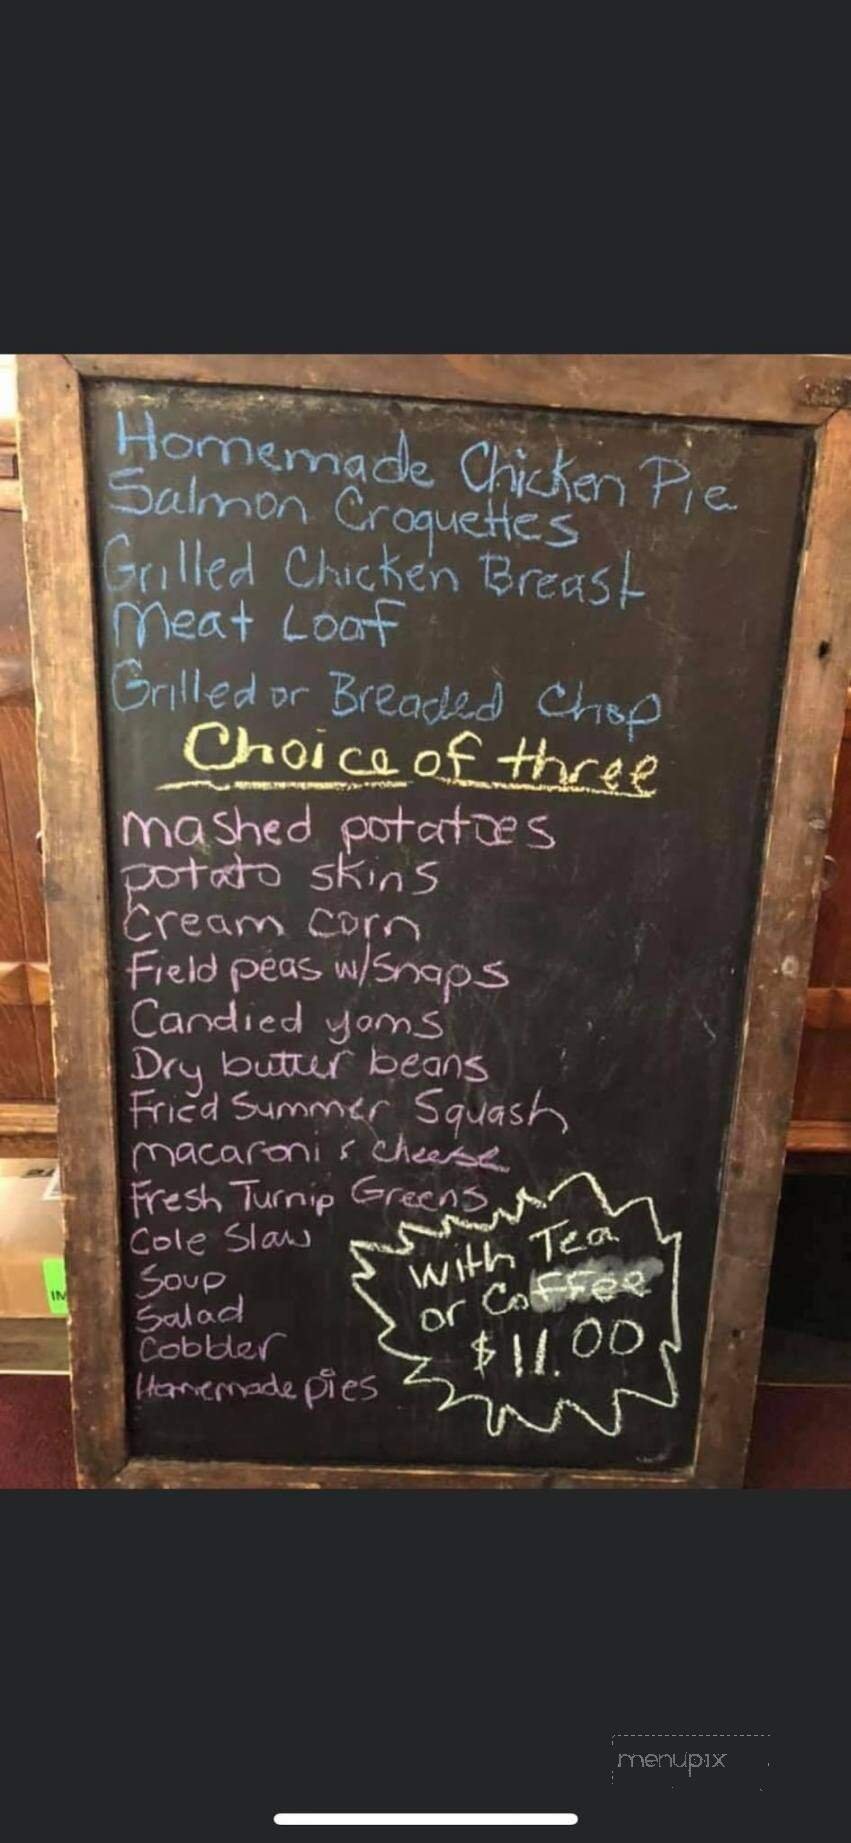 Homemade Chicken Pie
Salmon Croquettes
Grilled Chicken Breast
Meat Loaf
Grilled or Breaded Chop
Choice of three
mashed potatoes
potato skins
Cream corn
Field peas w/snaps
Candied yams
Dry butter beans
Fried Summer Squash
macaroni & cheese
Fresh Turnip Greens
Cole Slaw
Soup
Salad
Cobbler
Homemade pies
with Tea
or Coffee
$11.00
IM
menupix